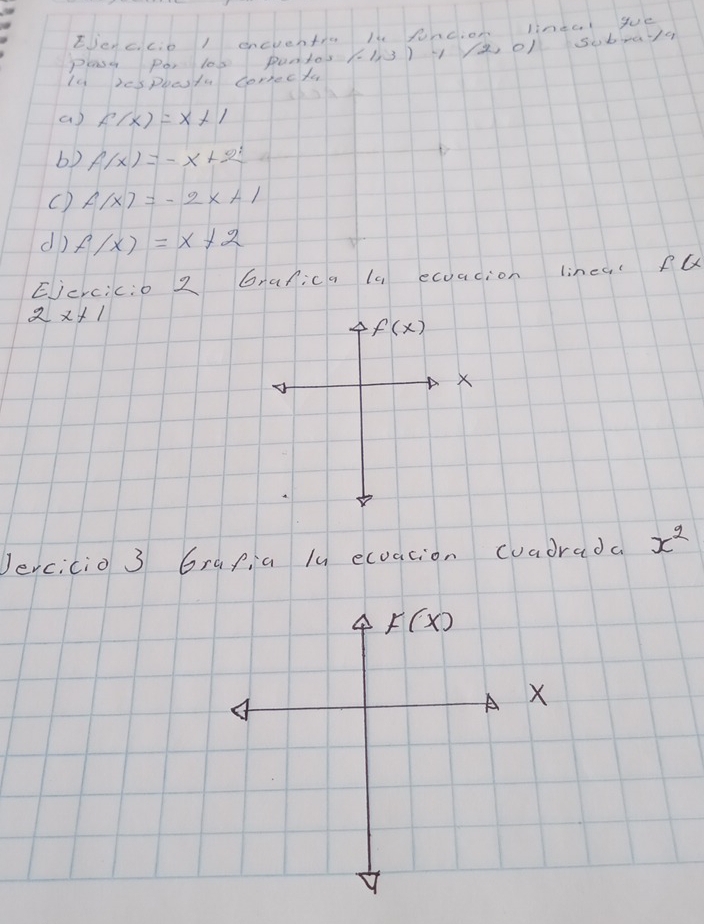 Ejercicio 1 encuentra la funcion lineal que
pasa por los puntos (-1,3) y (2,0) subraya
la respuesta correcta
a) f(x) = x + 1
b) f(x) = - x + 2
c) f(x) = - 2x + 1
d) f(x) = x + 2
Ejercicio 2 Grafica la ecuacion lineal f(x
2x+1
f(x)
x
Jercicio 3 Grafia la ecuacion cuadrada x²
F(X)
X